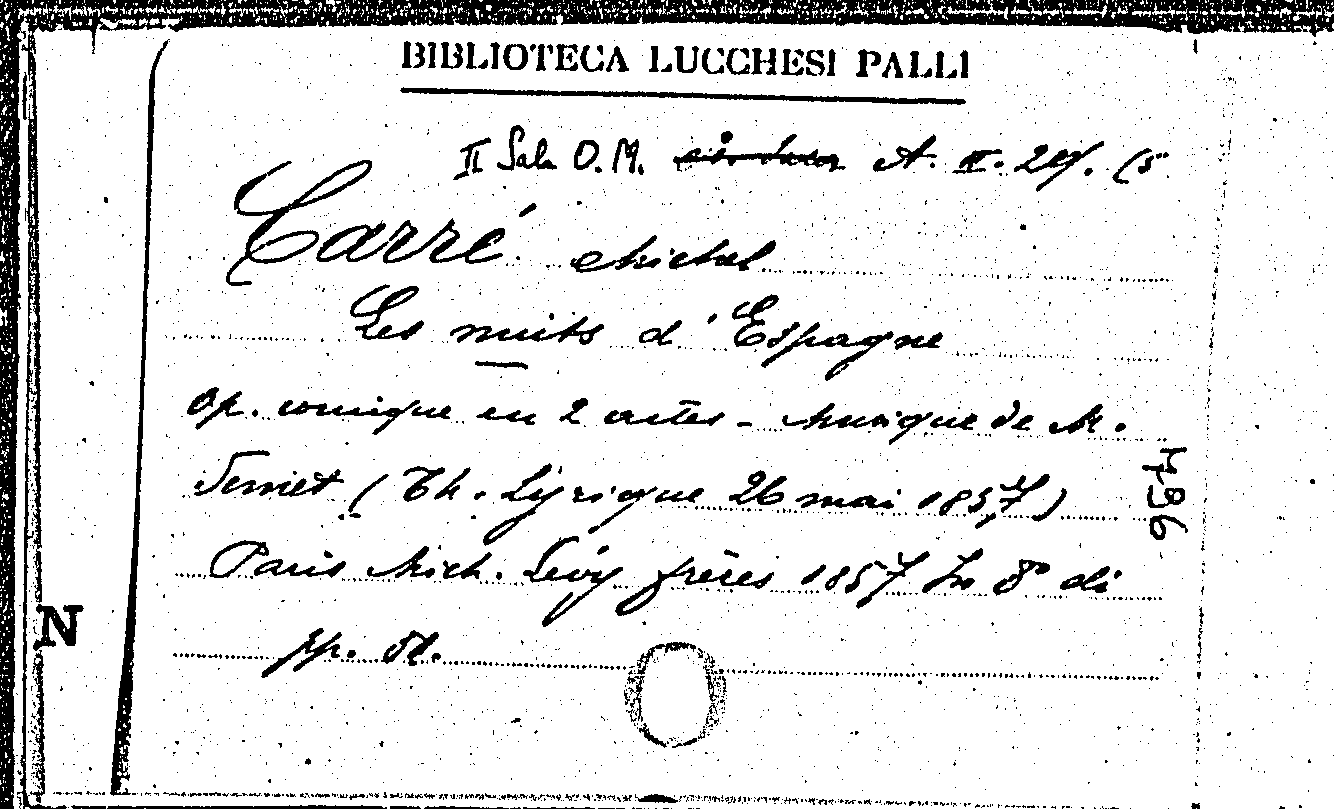 BIBLIOTECA LUCCHESI PALLI
II Sala O. M. A. II. 29. (5
Carré Michel
Les nuits d'Espagne
Op. comique en 2 actes - Musique de M.
Semet (Th. Lyrique 26 mai 1857)
Paris Mich. Lévy frères 1857 In 8° di
pp.
N